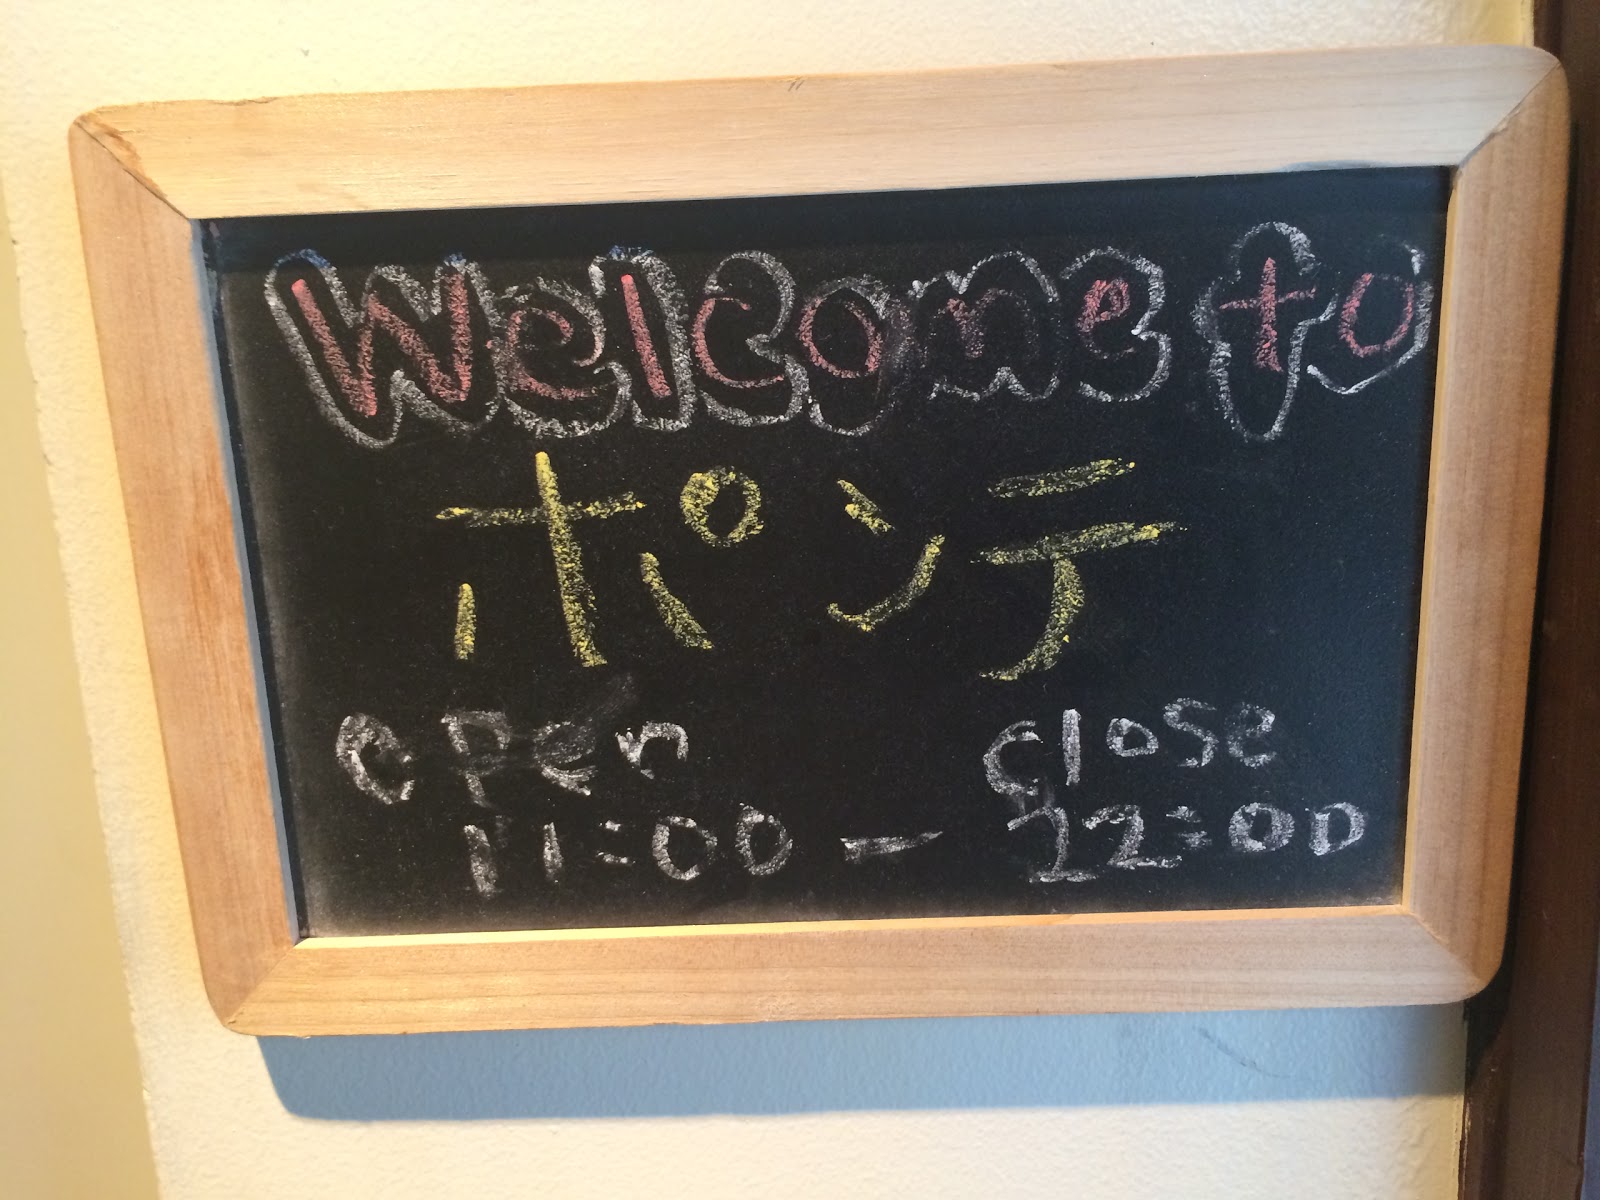 Welcome to
ポンテ
open close
11:00 - 22:00